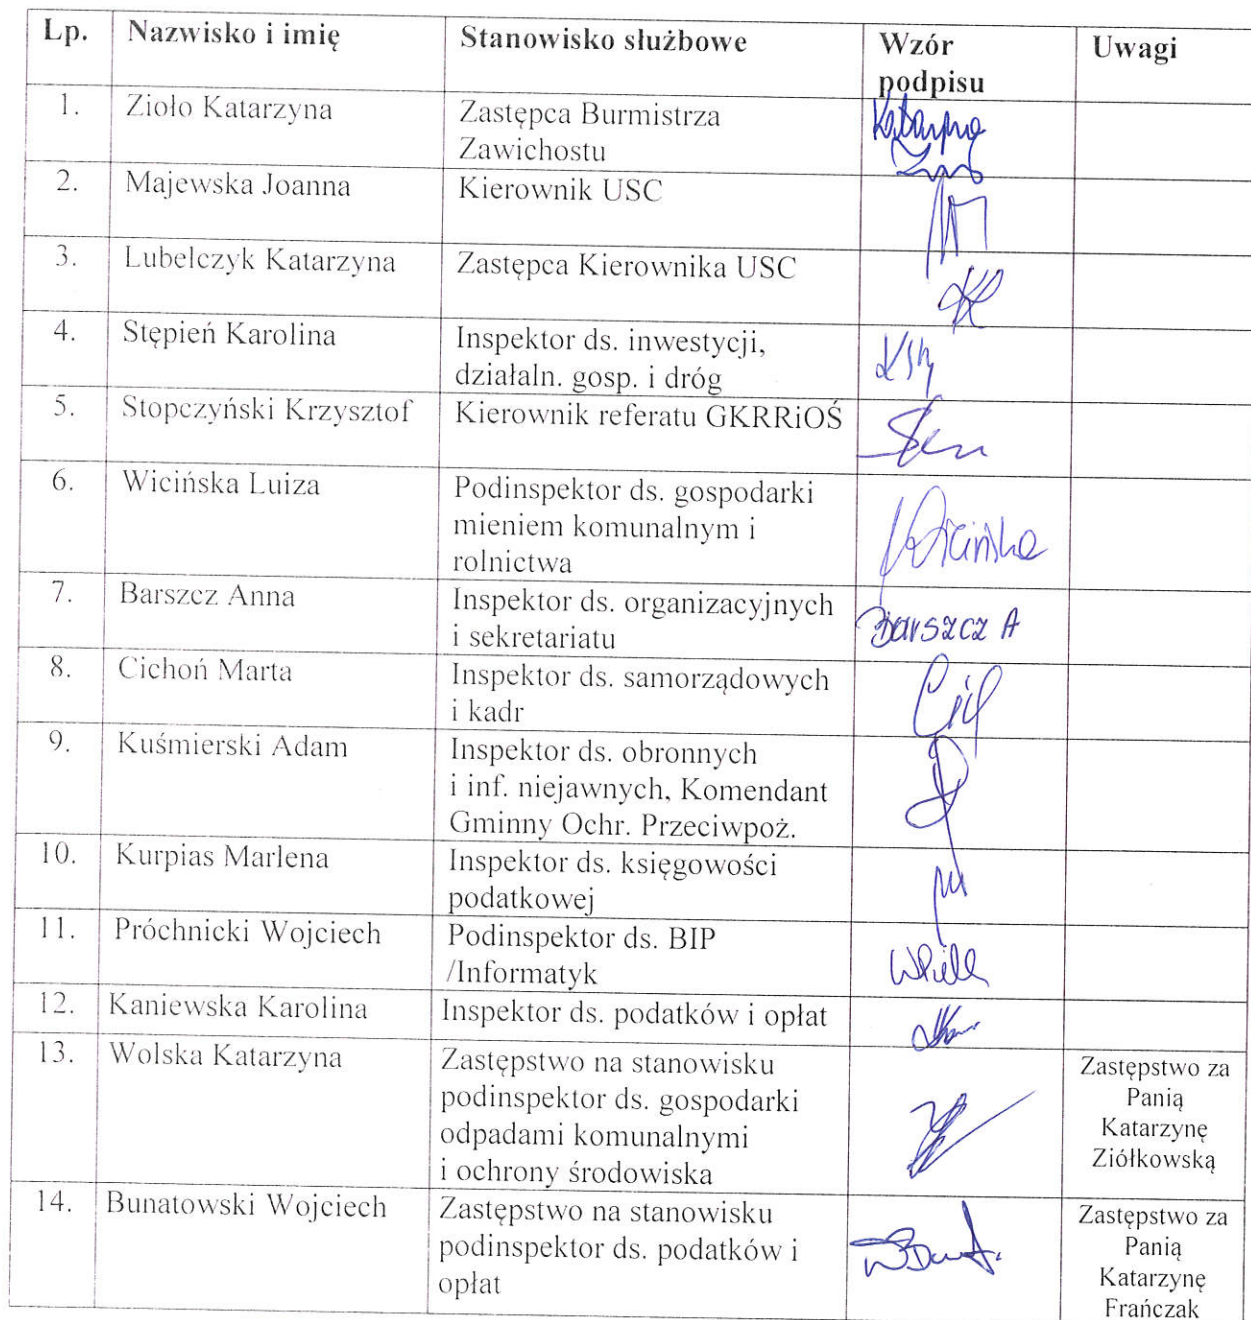 Lp. Nazwisko i imię Stanowisko służbowe Wzór Uwagi
podpisu
1. Zioło Katarzyna Zastępca Burmistrza Katarzyna
Zawichostu
2. Majewska Joanna Kierownik USC
3. Lubelczyk Katarzyna Zastępca Kierownika USC
4. Stępień Karolina Inspektor ds. inwestycji,
działaln. gosp. i dróg
5. Stopczyński Krzysztof Kierownik referatu GKRRiOŚ
6. Wicińska Luiza Podinspektor ds. gospodarki
mieniem komunalnym i Wicińska
rolnictwa
7. Barszcz Anna Inspektor ds. organizacyjnych
i sekretariatu Barszcz A
8. Cichoń Marta Inspektor ds. samorządowych
i kadr
9. Kuśmierski Adam Inspektor ds. obronnych
i inf. niejawnych, Komendant
Gminny Ochr. Przeciwpoż.
10. Kurpias Marlena Inspektor ds. księgowości
podatkowej
11. Próchnicki Wojciech Podinspektor ds. BIP
/Informatyk
12. Kaniewska Karolina Inspektor ds. podatków i opłat
13. Wolska Katarzyna Zastępstwo na stanowisku Zastępstwo za
podinspektor ds. gospodarki Panią
odpadami komunalnymi Katarzynę
i ochrony środowiska Ziółkowską
14. Bunatowski Wojciech Zastępstwo na stanowisku Zastępstwo za
podinspektor ds. podatków i Panią
opłat Katarzynę
Frańczak